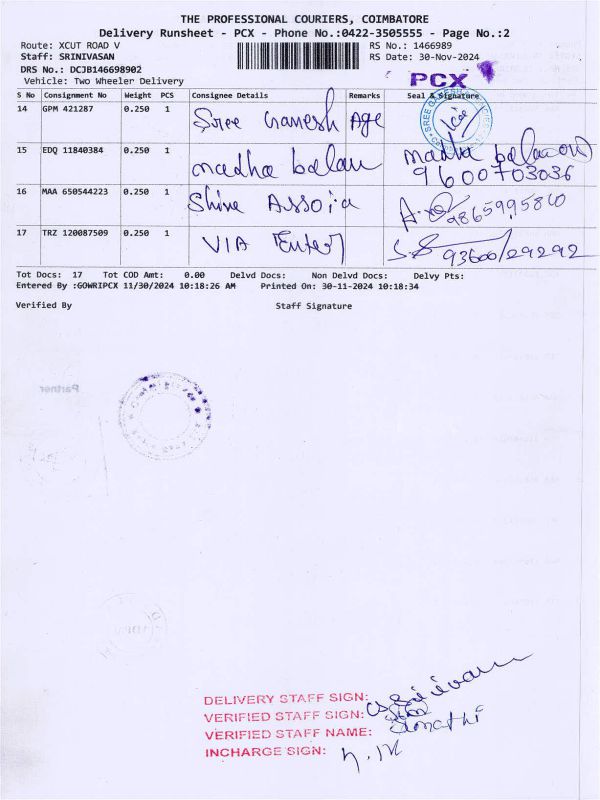 THE PROFESSIONAL COURIERS, COIMBATORE
Delivery Runsheet - PCX - Phone No.:0422-3505555 - Page No.:2
Route: XCUT ROAD V RS No.: 1466989
Staff: SRINIVASAN RS Date: 30-Nov-2024
DRS No.: DCJB146698902
Vehicle: Two Wheeler Delivery
PCX
S No Consignment No Weight PCS Consignee Details Remarks Seal & Signature
14 GPM 421287 0.250 1 Sree Ganesh Age
15 EDQ 11840384 0.250 1 madha balan madha balan
9600703036
16 MAA 650544223 0.250 1 Shine Assoia 9865995810
17 TRZ 120087509 0.250 1 VIA Enter 93600/29292
Tot Docs: 17 Tot COD Amt: 0.00 Delvd Docs: Non Delvd Docs: Delvy Pts:
Entered By :GOWRIPCX 11/30/2024 10:18:26 AM Printed On: 30-11-2024 10:18:34
Verified By Staff Signature
Partner
DELIVERY STAFF SIGN:
VERIFIED STAFF SIGN:
VERIFIED STAFF NAME:
INCHARGE SIGN: